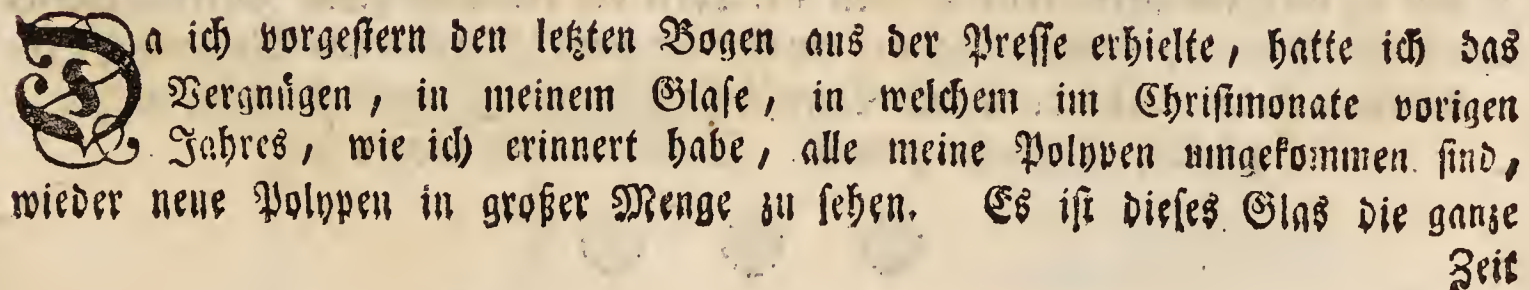 Da ich vorgestern den letzten Bogen aus der Presse erhielte, hatte ich das
Vergnügen, in meinem Glase, in welchem im Christmonate vorigen
Jahres, wie ich erinnert habe, alle meine Polypen umgekommen sind,
wieder neue Polypen in großer Menge zu sehen. Es ist dieses Glas die ganze
Zeit